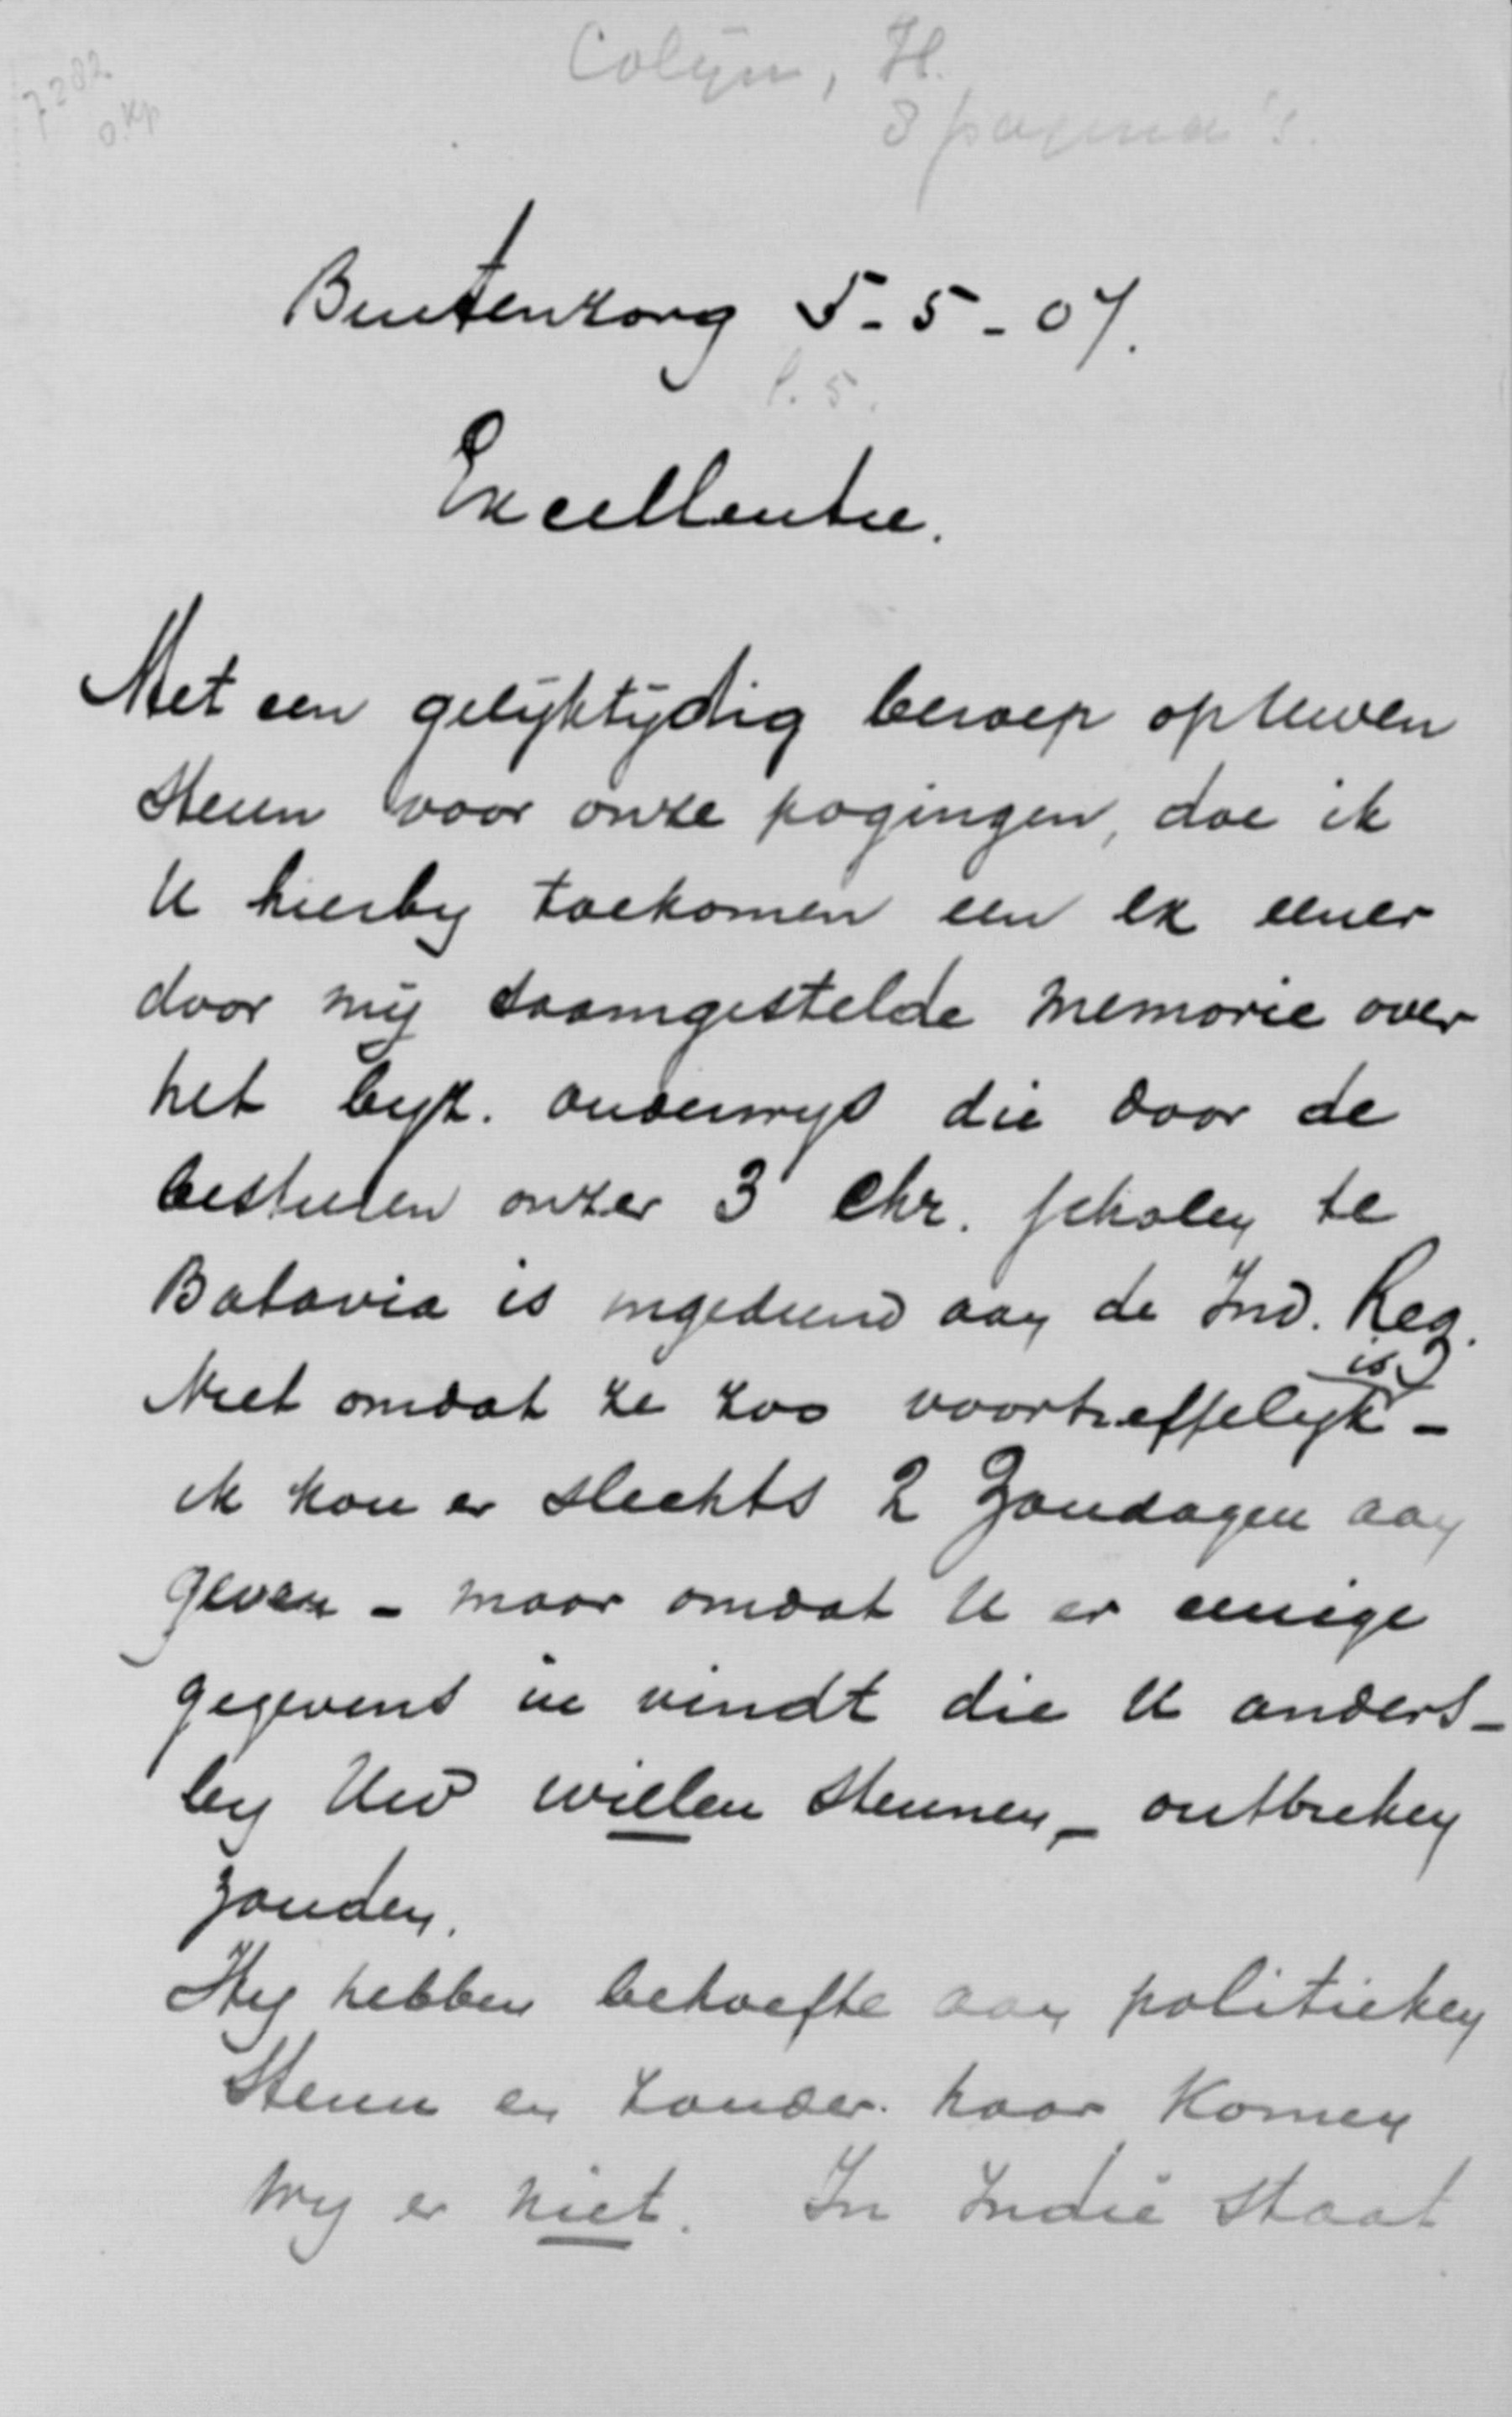 Colijn, H.
8 pagina's.
7282
o. Kp
Buitenzorg 5-5-07.
l. 5.
Excellentie.
Met een gelijktijdig beroep op Uwen
steun voor onze pogingen, doe ik
U hierby toekomen een ex eener
door mij saamgestelde memorie over
het byz. onderwys die door de
besturen onzer 3 Chr. scholen te
Batavia is ingediend aan de Ind. Reg.
Niet omdat ze zoo voortreffelyk is -
ik kon er slechts 2 Zondagen aan
geven - maar omdat U er eenige
gegevens in vindt die U anders -
by Uw willen steunen - ontbreken
zouden.
Wy hebben behoefte aan politieken
steun en zonder haar komen
wy er niet. In Indië staat